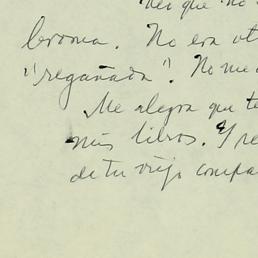 que no
broma. No era ot
"regañada". No me
Me alegra que te
mis libros. Y re
de tu viejo compa